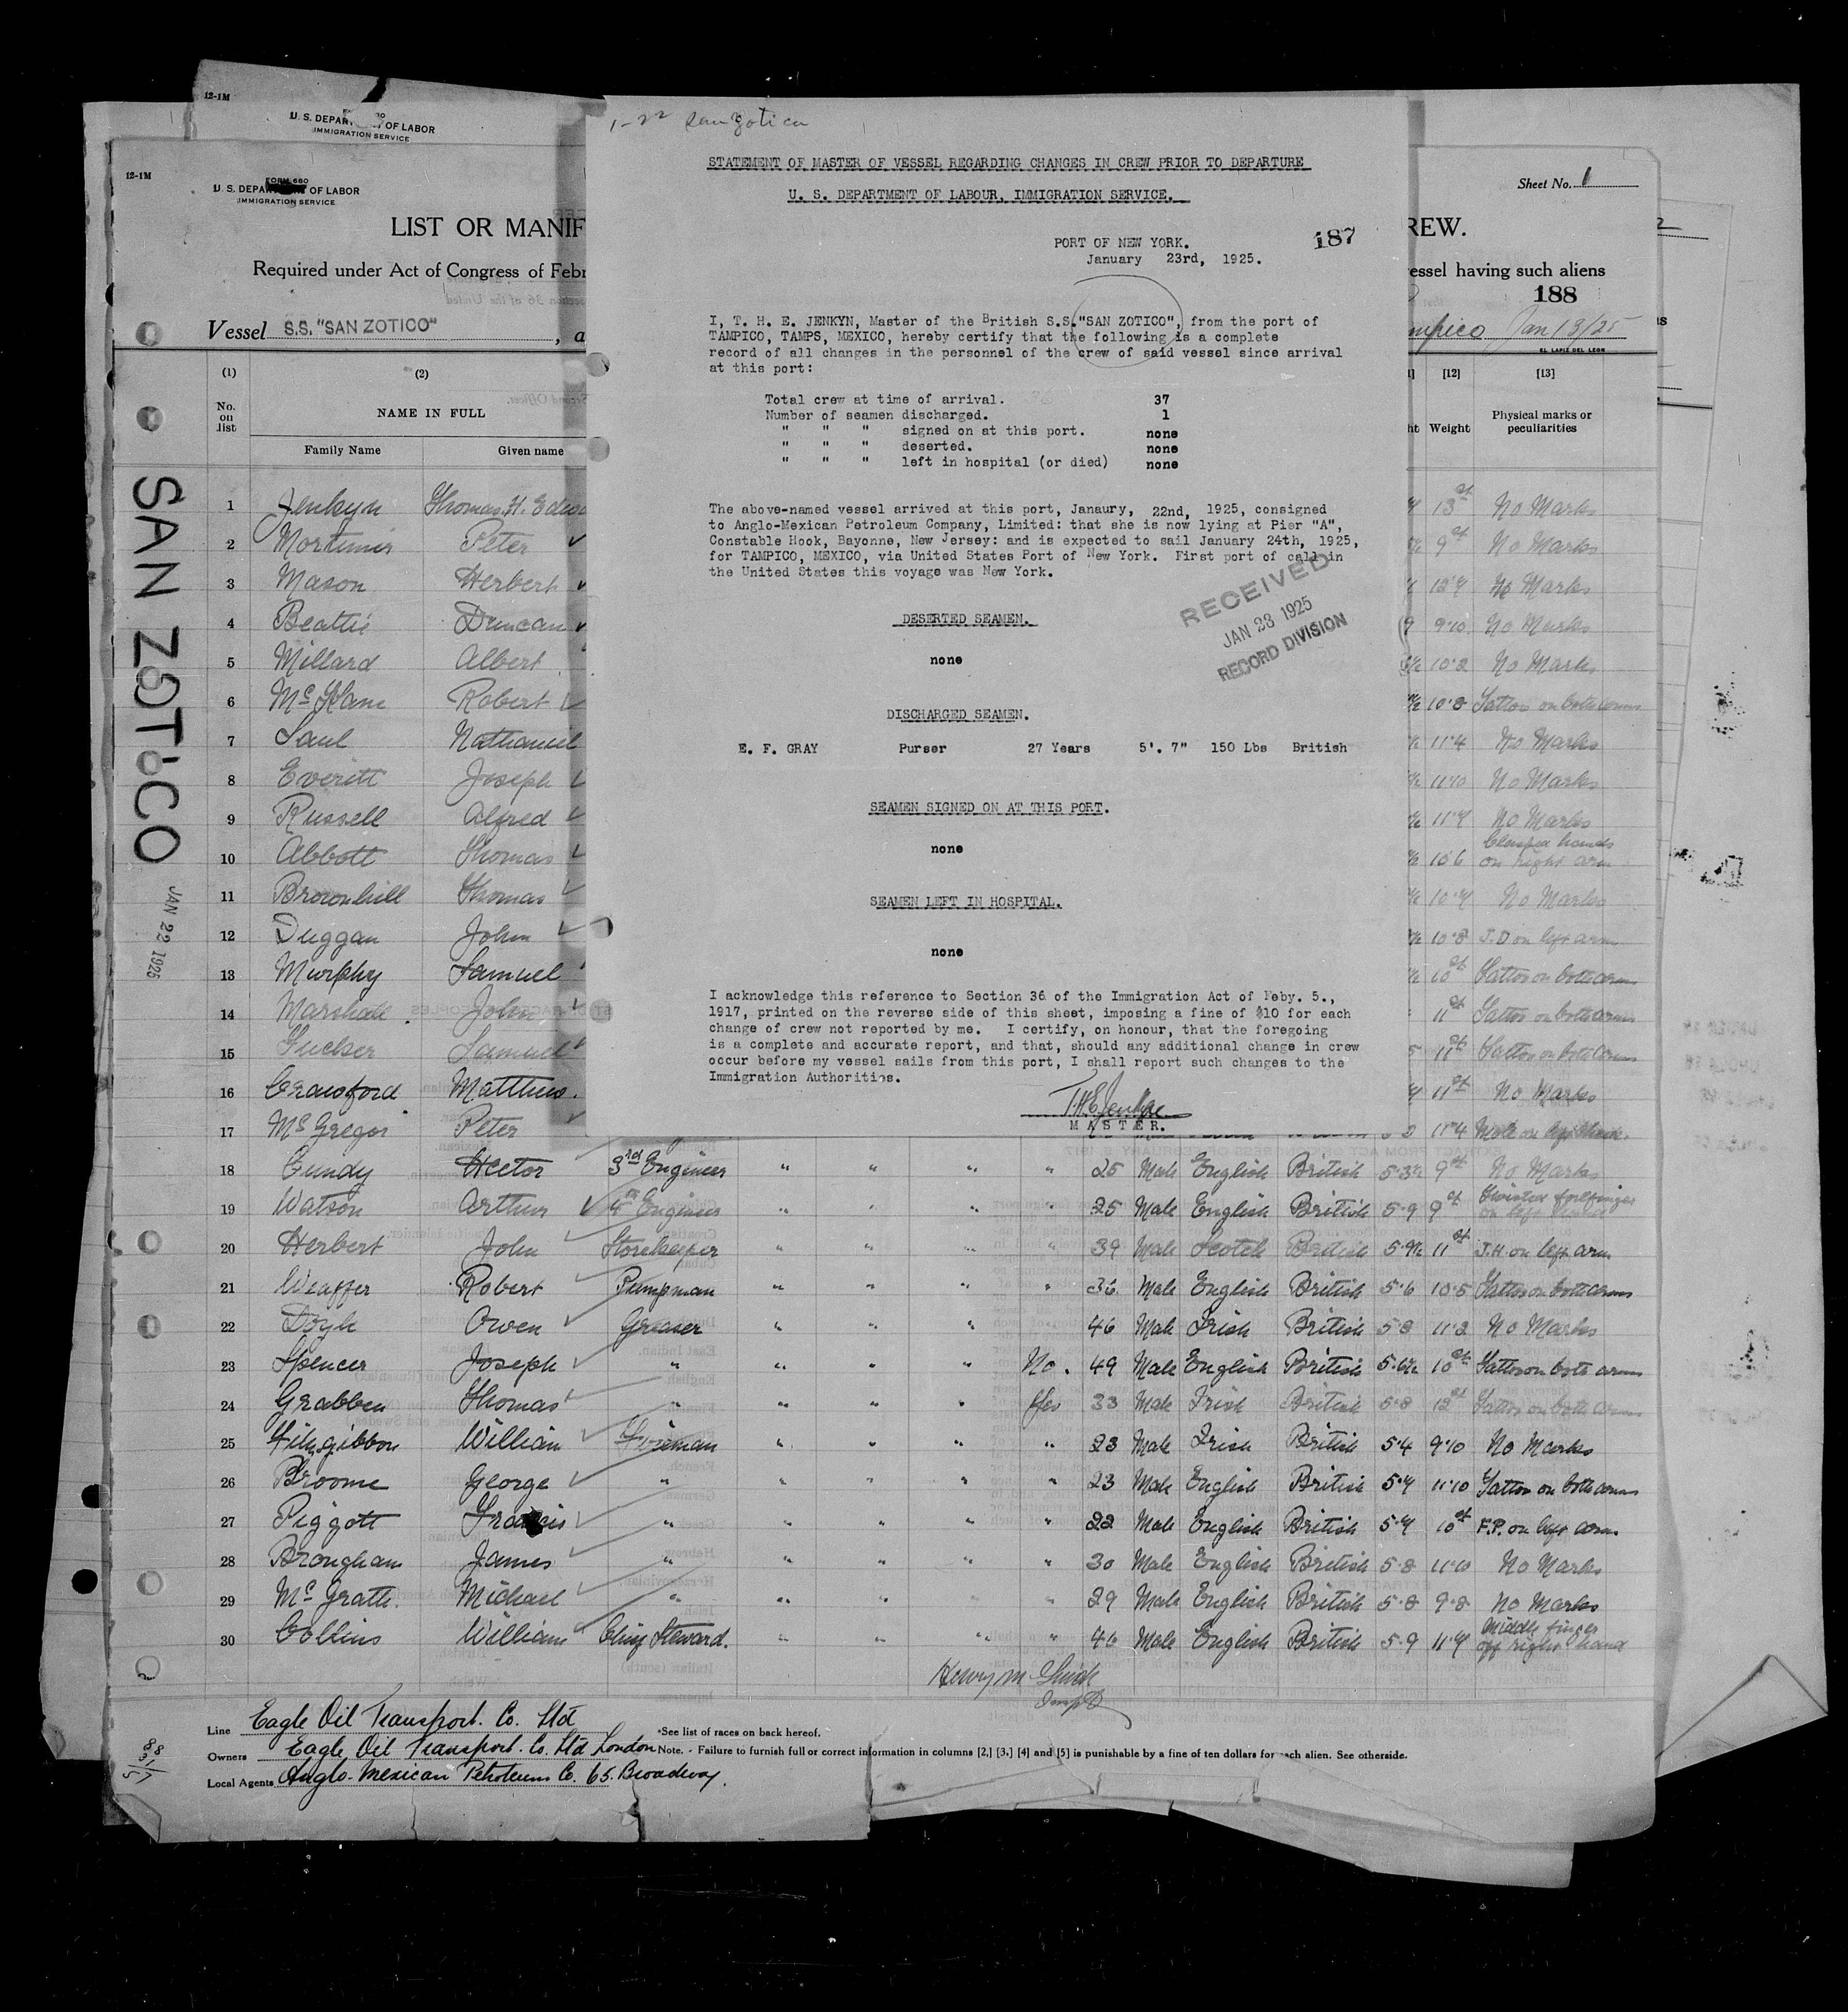 12-1M
U. S. DEPAR OF LABOR
IMMIGRATION SERVICE
12-1M
FORM 680
U. S. DEPAR OF LABOR
IMMIGRATION SERVICE
LIST OR MANIF
Required under Act of Congress of Febr
Vessel S.S. "SAN ZOTICO" , a
1-22 San Zotico
STATEMENT OF MASTER OF VESSEL REGARDING CHANGES IN CREW PRIOR TO DEPARTURE
U. S. DEPARTMENT OF LABOUR, IMMIGRATION SERVICE.
PORT OF NEW YORK.
187
January 23rd, 1925.
I, T. H. E. JENKYN, Master of the British S.S."SAN ZOTICO", from the port of
TAMPICO, TAMPS, MEXICO, hereby certify that the following is a complete
record of all changes in the personnel of the crew of said vessel since arrival
at this port:
Total crew at time of arrival. 37
Number of seamen discharged. 1
" " " signed on at this port. none
" " " deserted. none
" " " left in hospital (or died) none
The above-named vessel arrived at this port, Janaury, 22nd, 1925, consigned
to Anglo-Mexican Petroleum Company, Limited: that she is now lying at Pier "A",
Constable Hook, Bayonne, New Jersey: and is expected to sail January 24th, 1925,
for TAMPICO, MEXICO, via United States Port of New York. First port of call in
the United States this voyage was New York.
RECEIVED
JAN 23 1925
RECORD DIVISION
DESERTED SEAMEN.
none
DISCHARGED SEAMEN.
E. F. GRAY Purser 27 Years 5'. 7" 150 Lbs British
SEAMEN SIGNED ON AT THIS PORT.
none
SEAMEN LEFT IN HOSPITAL.
none
I acknowledge this reference to Section 36 of the Immigration Act of Feby. 5.,
1917, printed on the reverse side of this sheet, imposing a fine of $10 for each
change of crew not reported by me. I certify, on honour, that the foregoing
is a complete and accurate report, and that, should any additional change in crew
occur before my vessel sails from this port, I shall report such changes to the
Immigration Authorities.
T.H.E. Jenkyn
MASTER.
Sheet No. 1
REW.
essel having such aliens
188
mpico Jan 13/25
EL LAPIZ DEL LEON
SAN ZOTICO
JAN 22 1925
(1) (2) [12] [13]
No. on list NAME IN FULL ht Weight Physical marks or peculiarities
Family Name Given name
1 Jenkyn Thomas H. Edw 13st No Marks
2 Mortimer Peter 9st No Marks
3 Mason Herbert 12.7 No Marks
4 Beattie Duncan 9.10 No Marks
5 Millard Albert 10.2 No Marks
6 McKane Robert 10.8 Tattoo on both arms
7 Saul Nathaniel 11.4 No Marks
8 Everitt Joseph 11.10 No Marks
9 Russell Alfred 11.7 No Marks
10 Abbott Thomas 10.6 Clasped hands on right arm
11 Brownhill Thomas 10.7 No Marks
12 Duggan John 10.8 J.D on left arm
13 Murphy Samuel 10st Tattoo on both arms
14 Marshall John 11st Tattoo on both arms
15 Samuel 11st Tattoo on both arms
16 Crawford Matthew. 11st No Marks
17 McGregor Peter 11.4
18 Cundy Hector 3rd Engineer " " " " 25 Male English British 5.3½ 9st No Marks
19 Watson Arthur 4th Engineer " " " " 25 Male English British 5.9 9st Twisted forefinger on left hand
20 Herbert John Storekeeper " " " " 39 Male Scotch British 5.9½ 11st J.H. on left arm
21 Weaffer Robert Pumpman " " " " 36 Male English British 5.6 10.5 Tattoo on both arms
22 Doyle Owen Greaser " " " 46 Male Irish British 5.8 11.2 No Marks
23 Spencer Joseph " " " " No. 49 Male English British 5.6½ 10st Tattoo on both arms
24 Grabben Thomas " " " " Yes 33 Male Irish British 5.8 12st Tattoo on both arms
25 Fitzgibbon William Fireman " " " " 23 Male Irish British 5.4 9.10 No Marks
26 Broome George " " " " " 23 Male English British 5.7 11.10 Tattoo on both arms
27 Piggott Francis " " " " " 22 Male English British 5.7 10st F.P. on left arm
28 Brougham James " " " " " 30 Male English British 5.8 11.10 No Marks
29 McGrath. Michael " " " " " 29 Male English British 5.8 9.8 No Marks
30 Collins William Chief Steward. " " " " 46 Male English British 5.9 11.7 Middle finger off right hand
Line Eagle Oil Transport. Co. Ltd
*See list of races on back hereof.
Owners Eagle Oil Transport. Co. Ltd London
Note. - Failure to furnish full or correct information in columns [2,] [3,] [4] and [5] is punishable by a fine of ten dollars for each alien. See otherside.
Local Agents Anglo-Mexican Petroleum Co. 65. Broadway.